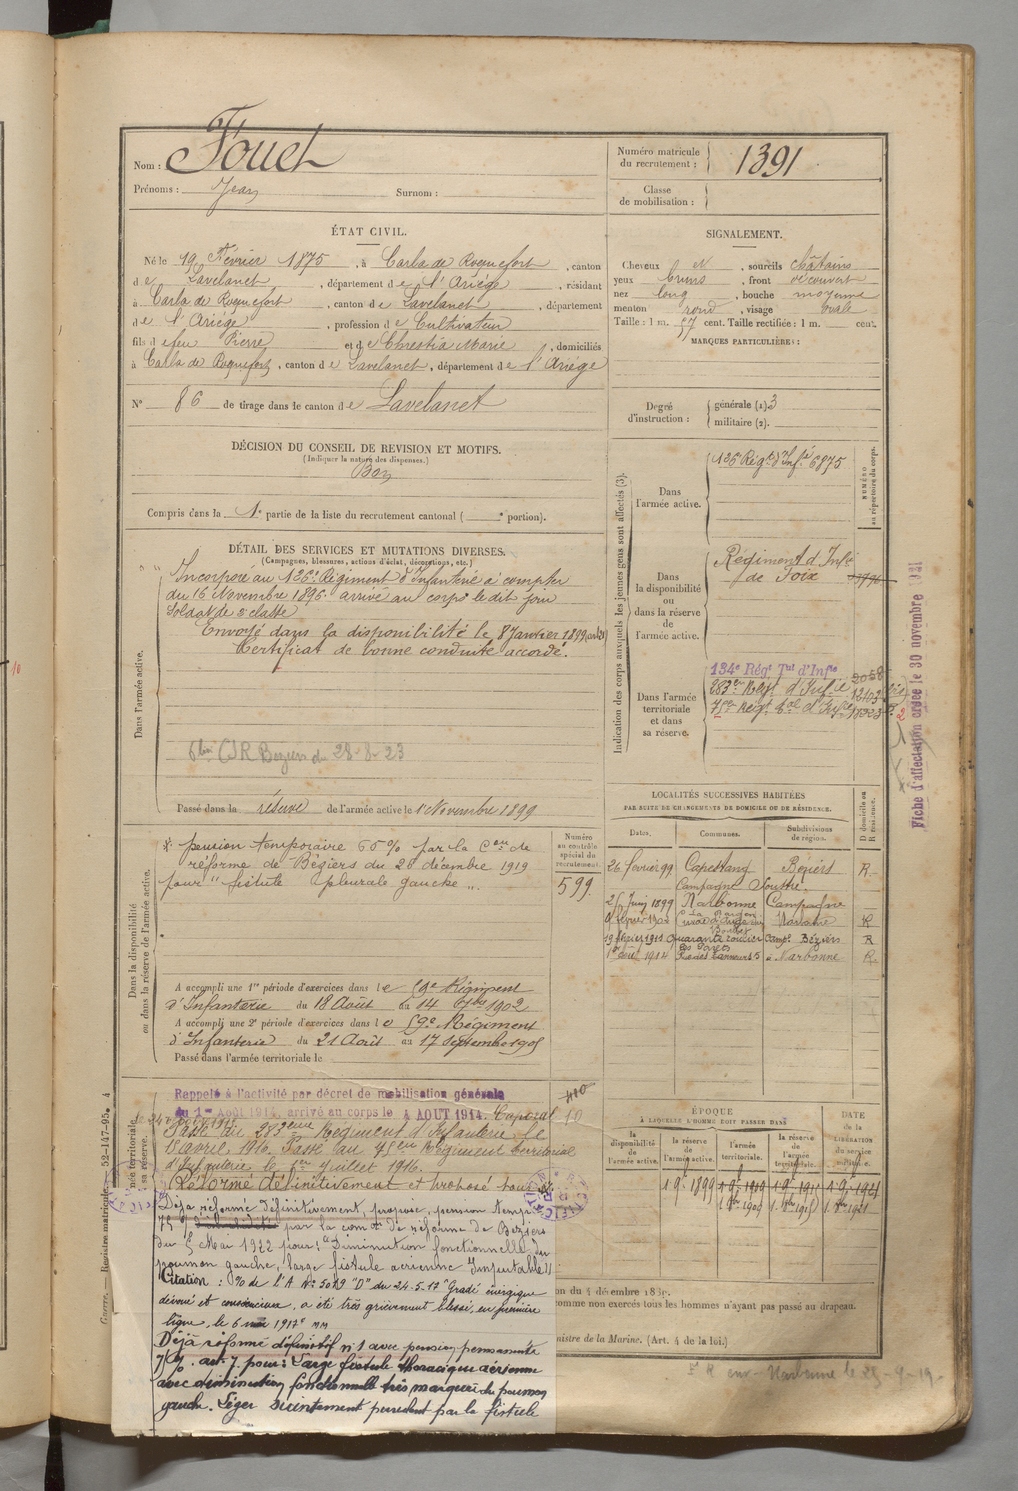 Nom : Fouet
Prénoms : Jean Surnom :
Numéro matricule du recrutement : 1391
Classe de mobilisation :
ÉTAT CIVIL.
Né le 19 Février 1875, à Carla de Roquefort, canton
de Lavelanet, département de l'Ariège, résidant
à Carla de Roquefort, canton de Lavelanet, département
de l'Ariège, profession de Cultivateur
fils de feu Pierre et de Chrestia Marie, domiciliés
à Carla de Roquefort, canton de Lavelanet, département de l'Ariège
N° 86 de tirage dans le canton de Lavelanet
DÉCISION DU CONSEIL DE REVISION ET MOTIFS.
(Indiquer la nature des dispenses.)
Bon
Compris dans la 1e partie de la liste du recrutement cantonal ( e portion).
SIGNALEMENT.
Cheveux et, sourcils châtains
yeux bruns, front découvert
nez long, bouche moyenne
menton rond, visage ovale
Taille : 1 m. 57 cent. Taille rectifiée : 1 m. cent.
MARQUES PARTICULIÈRES :
Degré d'instruction : générale (1). 3
militaire (2).
DÉTAIL DES SERVICES ET MUTATIONS DIVERSES.
(Campagnes, blessures, actions d'éclat, décorations, etc.)
Dans l'armée active.
Incorporé au 126e Régiment d'Infanterie à compter
du 16 Novembre 1896 arrivé au corps le dit jour
Soldat de 2e classe
Envoyé dans la disponibilité le 8 Janvier 1899
Certificat de bonne conduite accordé.
CSR Béziers du 28-8-23
Passé dans la réserve de l'armée active le 1 Novembre 1899
Indication des corps auxquels les jeunes gens sont affectés (3).
NUMÉRO au répertoire du corps.
Dans l'armée active.
126e Régt d'Infie 6875
Dans la disponibilité ou dans la réserve de l'armée active.
Régiment d'Infie
de Foix
Dans l'armée territoriale et dans sa réserve.
134e Régt Tal d'Infie 2058
283eme Régt d'Infie 12403
75me Régt tal d'Infie 18323
Fiche d'affectation créée le 30 novembre 1921
LOCALITÉS SUCCESSIVES HABITÉES
PAR SUITE DE CHANGEMENTS DE DOMICILE OU DE RÉSIDENCE.
Dates. Communes. Subdivisions de région. D domicile ou R résidence.
26 février 99 Capestang Béziers R.
Campagne
25 Juin 1899 Narbonne Campagne
février 1902 Narbonne R
19 février 1911 Quarante Béziers R
1er 1914 Rue des Tanneurs 5 à Narbonne R
Dans la disponibilité ou dans la réserve de l'armée active.
Numéro au contrôle spécial du recrutement.
599.
pension temporaire 65% par la Con de
réforme de Béziers du 26 décembre 1919
pour "fistule pleurale gauche".
A accompli une 1re période d'exercices dans le 59e Régiment
d'Infanterie du 18 Août au 14 7bre 1902
A accompli une 2e période d'exercices dans le 59e Régiment
d'Infanterie du 21 Août au 17 Septembre 1905
Passé dans l'armée territoriale le
Rappelé à l'activité par décret de mobilisation générale
du 1er Août 1914, arrivé au corps le 4 AOUT 1914. Caporal
Passé au 283eme Régiment d'Infanterie le
18 avril 1916. Passé au 75eme Régiment territorial
d'Infanterie le 1er Juillet 1916.
Réformé définitivement et proposé pour
Déja réformé définitivement, proposé, pension temp.
75% par la comon de réforme de Béziers
du 5 Mai 1922 pour : "Diminution fonctionnelle du
poumon gauche, large fistule aérienne Imputable"
Citation : % de l'A No 5019 "D" du 24-5-17 "Gradé énergique
dévoué et consciencieux, a été très grièvement blessé, en première
ligne, le 6 mai 1917"
Déjà réformé définitif n° 1 avec pension permanente
75%. art. 7 pour : Large fistule thoracique aérienne
avec diminution fonctionnelle très marquée du poumon
gauche. Léger suintement purulent par la fistule
ÉPOQUE
À LAQUELLE L'HOMME DOIT PASSER DANS
la disponibilité de l'armée active. la réserve de l'armée active. l'armée territoriale. la réserve de l'armée territoriale. DATE DE LA LIBÉRATION du service militaire.
1 9bre 1899 1 9bre 1909 1 9bre 1915 1 9bre 1921
1 8bre 1909 1 8bre 1915 1 8bre 1921
on du 5 décembre 189
comme non exercés tous les hommes n'ayant pas passé au drapeau.
nistre de la Marine. (Art. 4 de la loi.)
Narbonne le 25-9-19
Guerre. — Registre matricule. — 52-147-95. 4